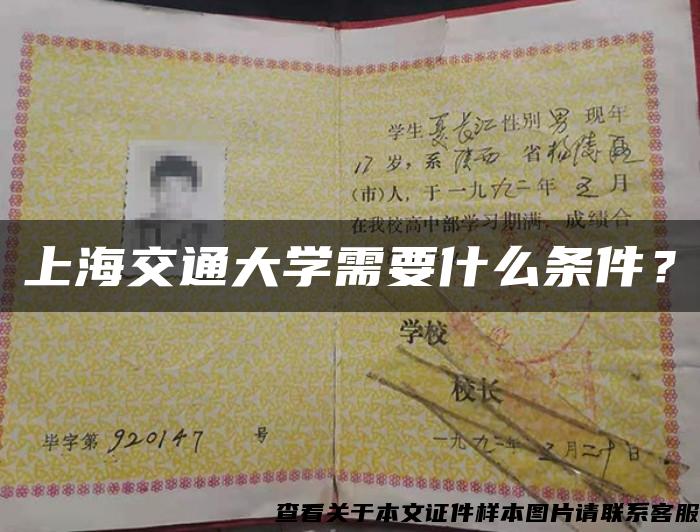 学生夏长江性别男 现年
17岁,系陕西 省杨陵区
(市)人,于一九九二年 五月
在我校高中部学习期满,成绩合
上海交通大学需要什么条件?
学校
校长
毕字第 920147 号
一九九二年 五月二十日
查看关于本文证件样本图片请联系客服